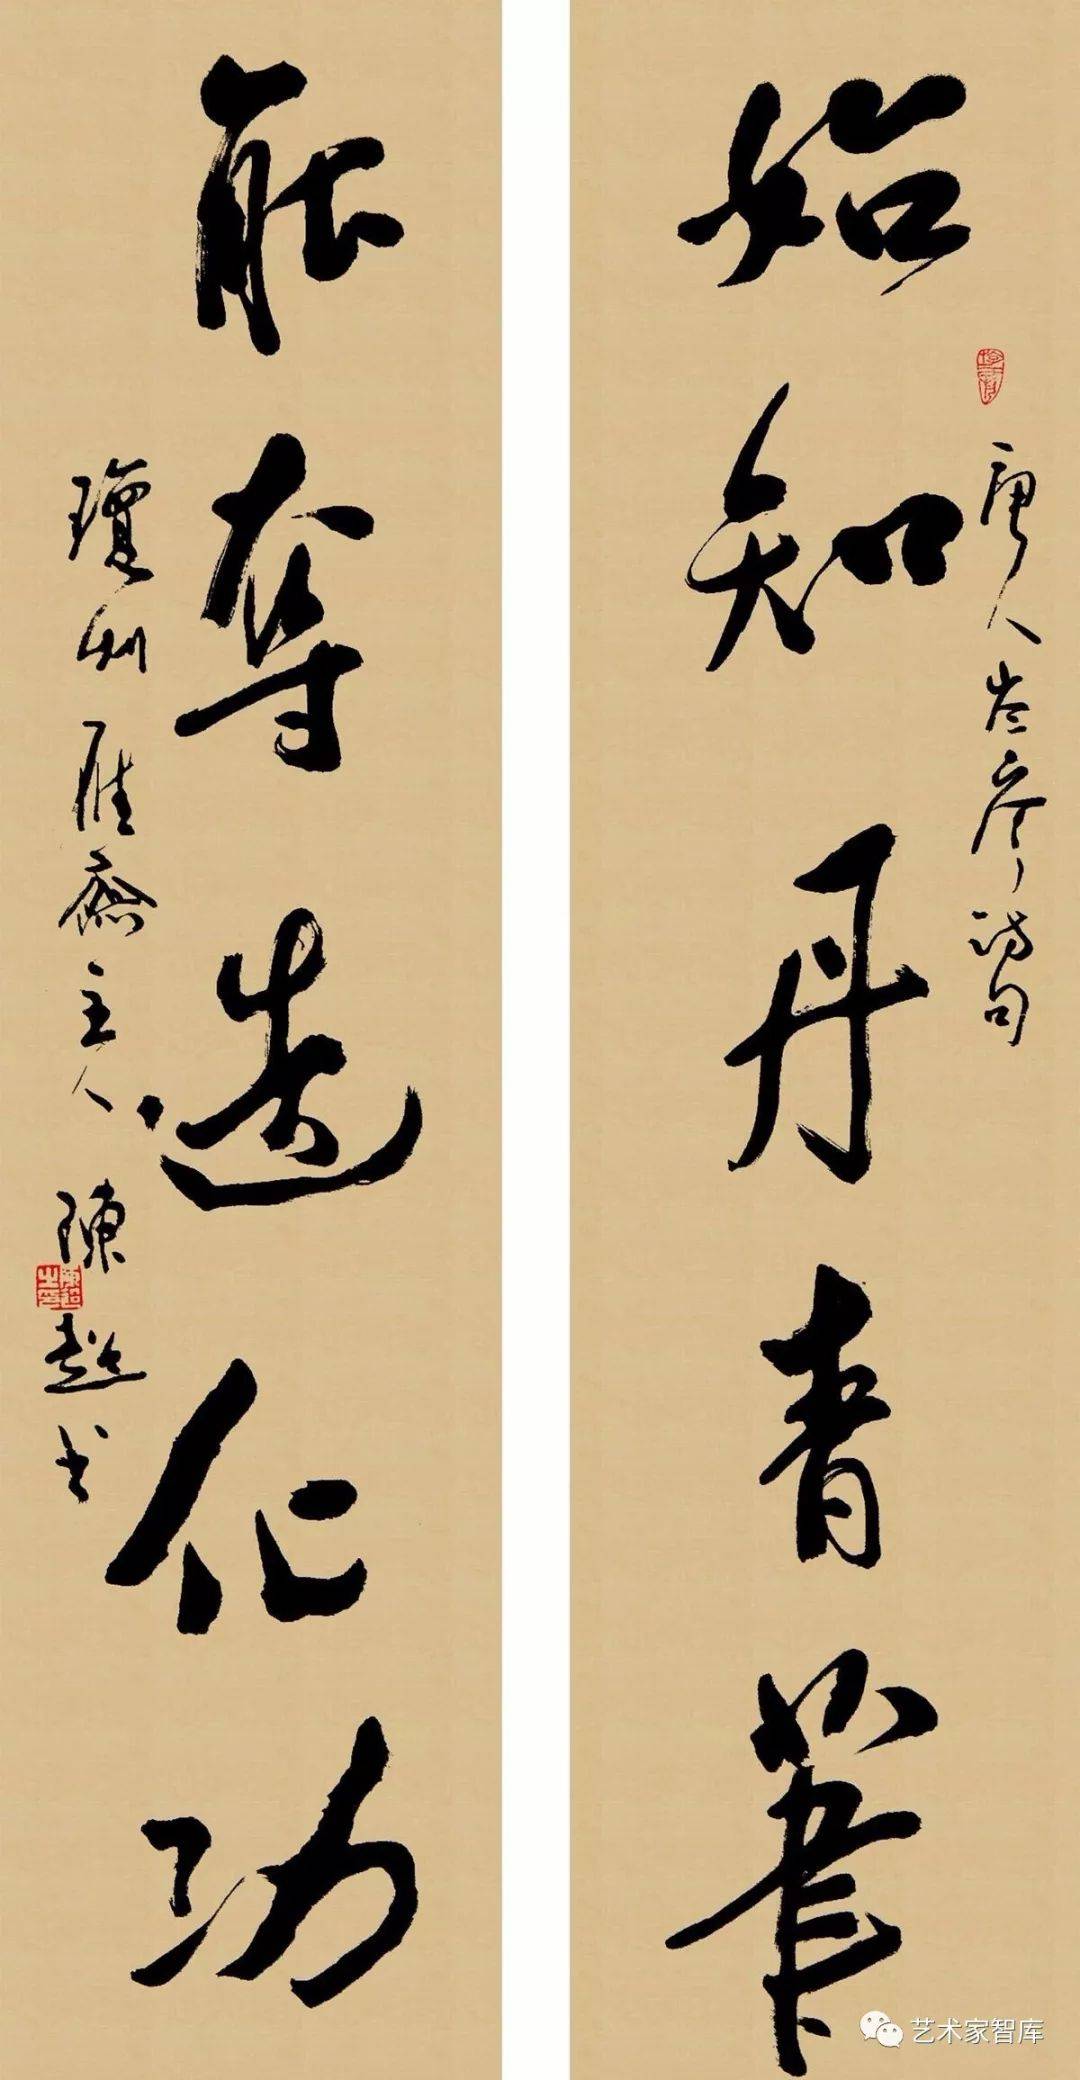 始知丹青笔
唐人岑参诗句
能夺造化功
琼州雁斋主人陈超书
艺术家智库